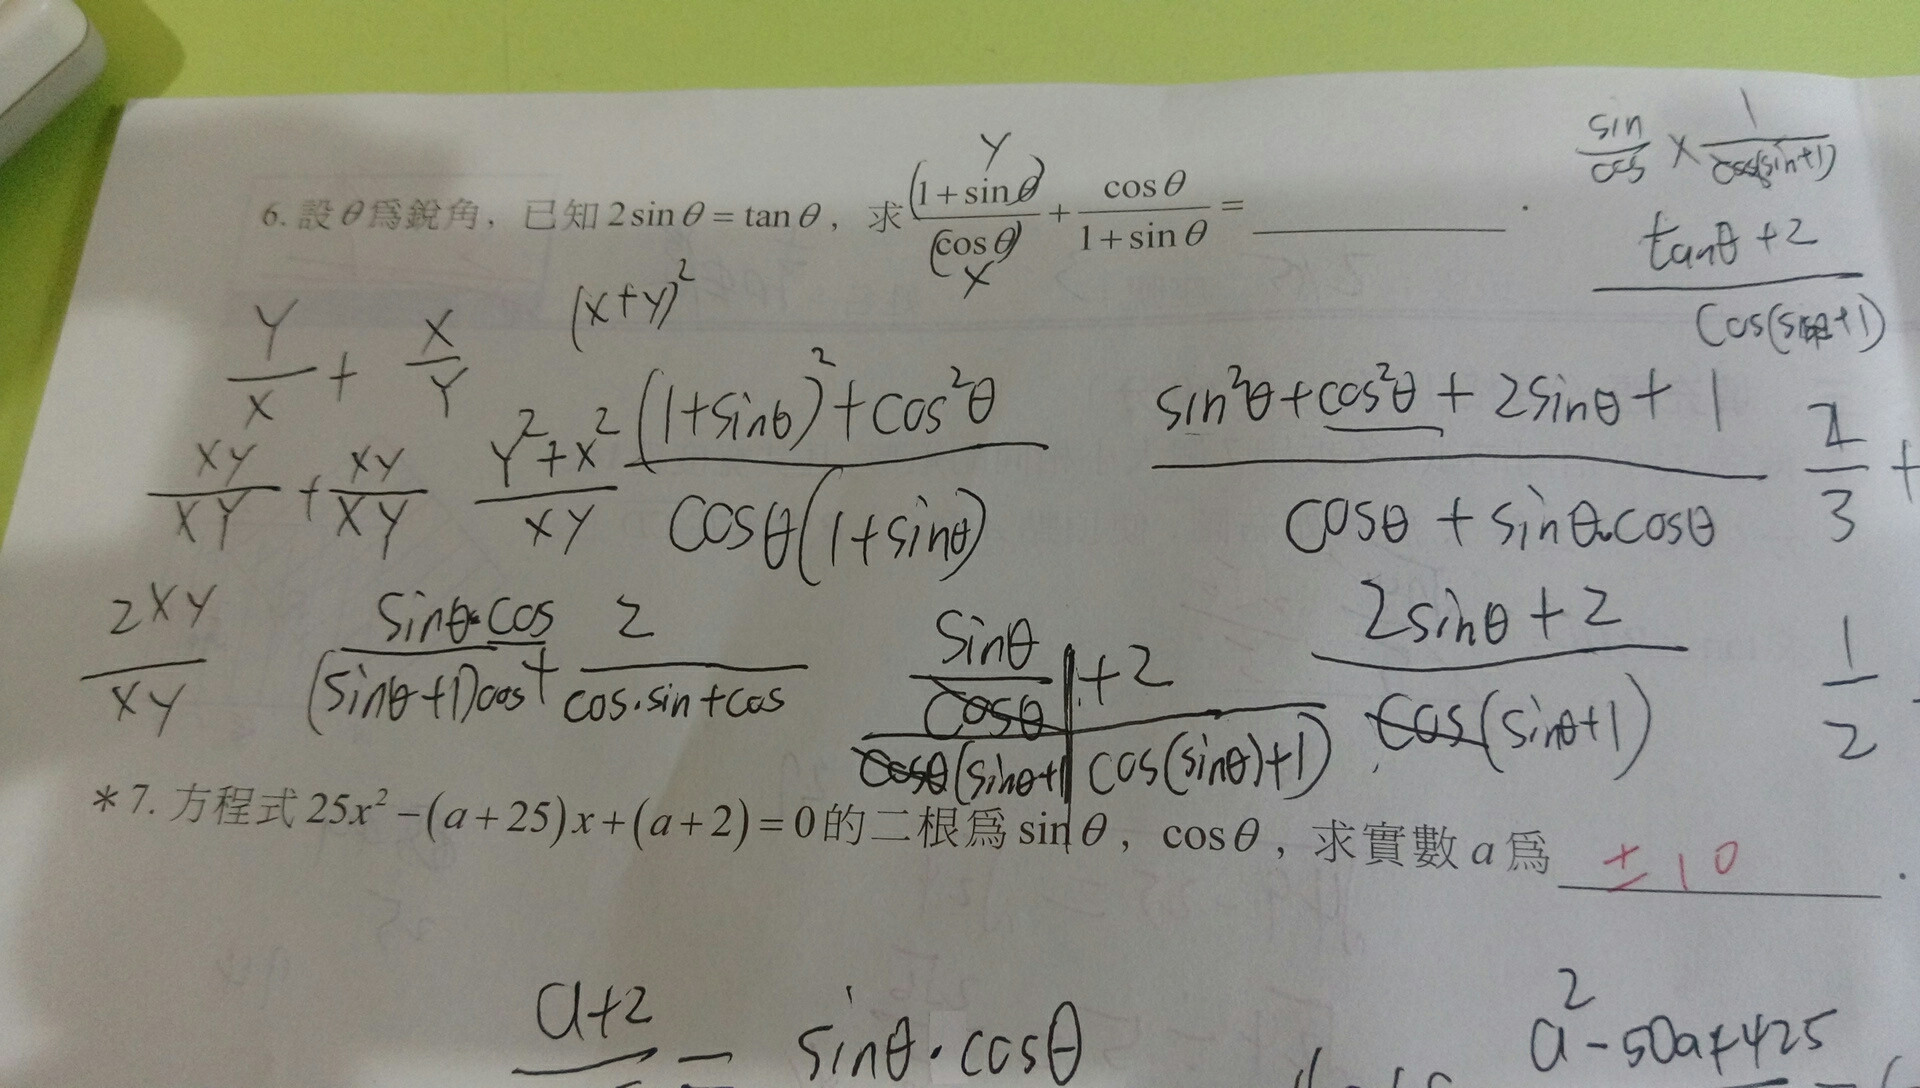 sin/cos × 1/cos(sin+1)
Y
6. 設θ為銳角，已知 2sinθ = tanθ，求 (1+sinθ)/(cosθ) + cosθ/(1+sinθ) = ________ .
X
tanθ+2 / cos(sinθ+1)
Y/X + X/Y (x+y)²
XY/XY + XY/XY Y²+X²/XY (1+sinθ)²+cos²θ / cosθ(1+sinθ) sin²θ+cos²θ+2sinθ+1 / cosθ+sinθ·cosθ
2XY/XY sinθ·cos/(sinθ+1)cos + 2/cos·sin+cos sinθ/cosθ +2 / cosθ(sinθ+1 cos(sinθ)+1) 2sinθ+2 / cos(sinθ+1) 1/2
*7. 方程式 25x²−(a+25)x+(a+2)=0 的二根為 sinθ，cosθ，求實數 a 為 ±10 .
a+2 = sinθ·cosθ a²-50a+425